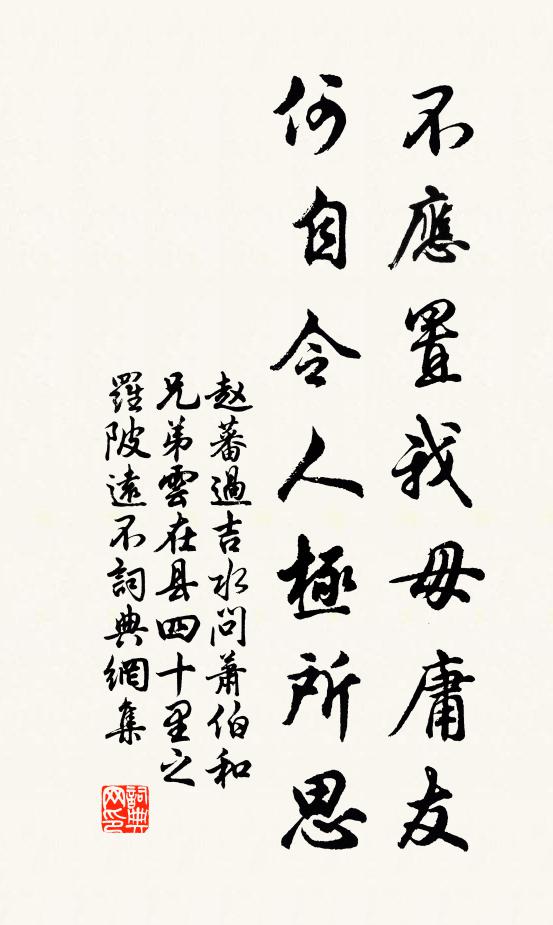 不應置我毋庸友
何自令人極所思
赵蕃過吉水問蕭伯和
兄弟雲在县四十里之
羅陂遠不詞典網集
詞典网印